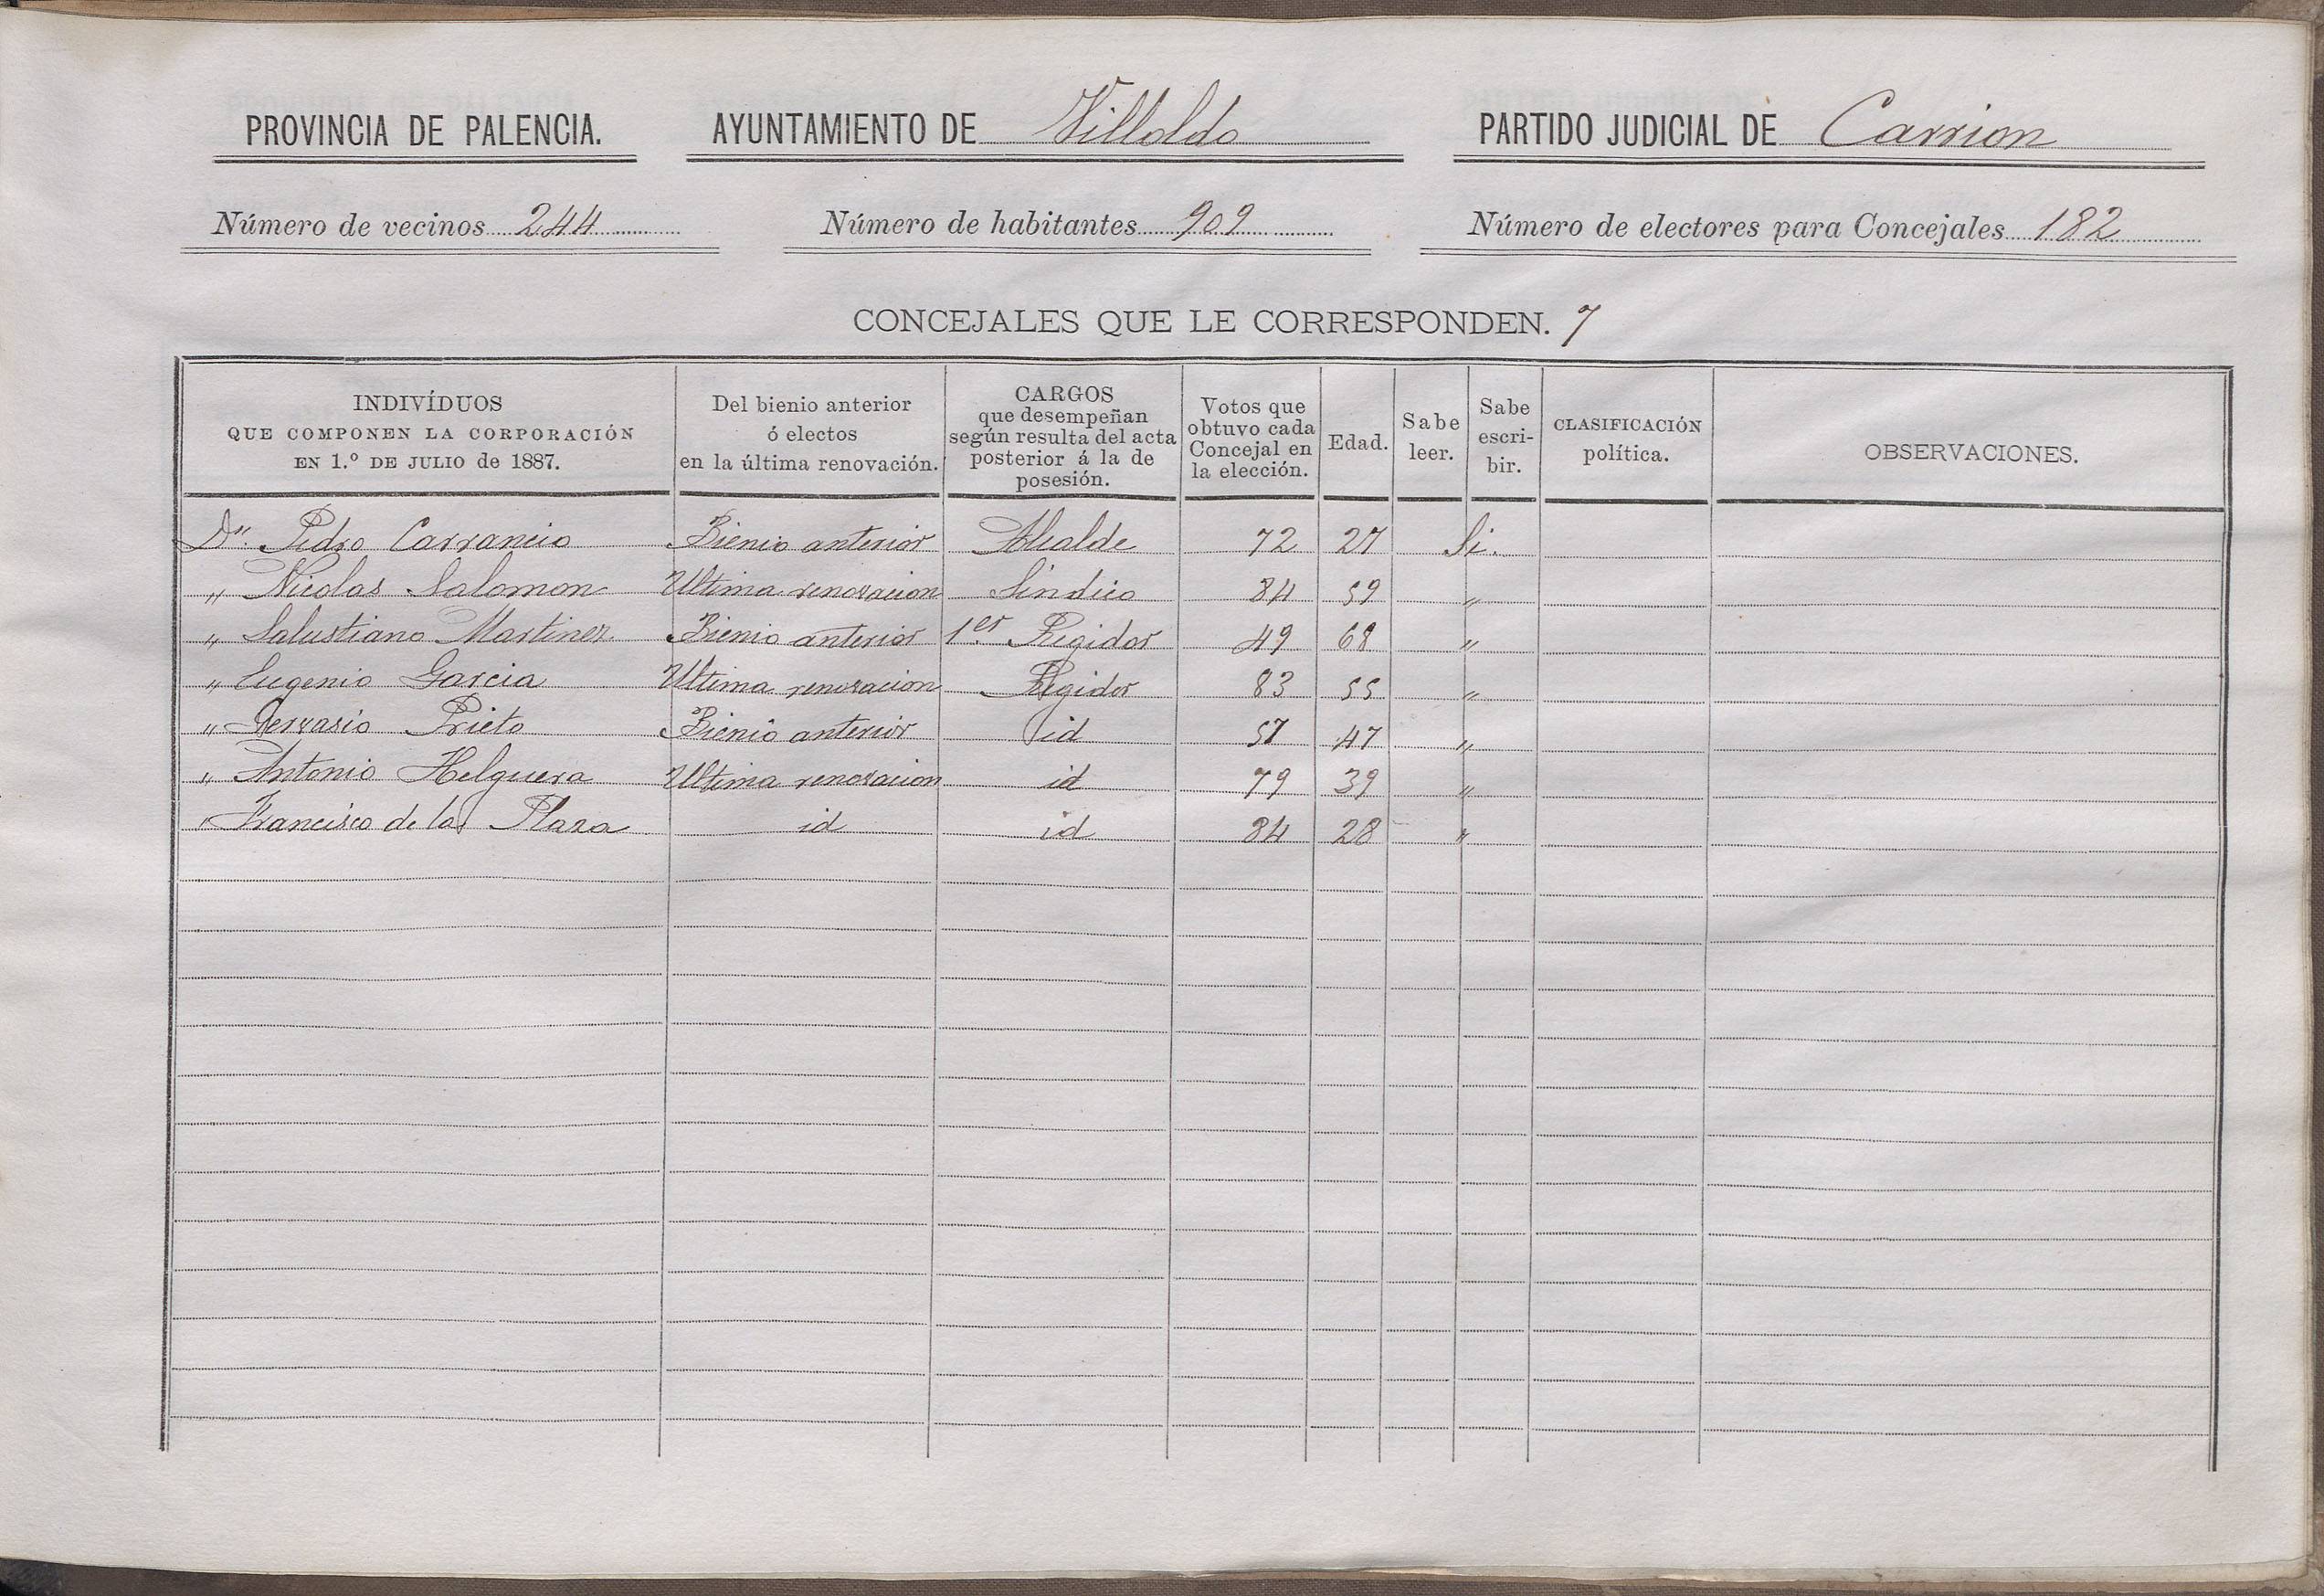 PROVINCIA DE PALENCIA. AYUNTAMIENTO DE Villoldo PARTIDO JUDICIAL DE Carrion
Número de vecinos 244 Número de habitantes 909 Número de electores para Concejales 182
CONCEJALES QUE LE CORRESPONDEN. 7
INDIVÍDUOS
QUE COMPONEN LA CORPORACIÓN
EN 1.º DE JULIO de 1887.
Del bienio anterior
ó electos
en la última renovación.
CARGOS
que desempeñan
según resulta del acta
posterior á la de
posesión.
Votos que
obtuvo cada
Concejal en
la elección.
Edad.
Sabe
leer.
Sabe
escri-
bir.
CLASIFICACIÓN
política.
OBSERVACIONES.
Dn. Pedro Carrancio Bienio anterior Alcalde 72 27 Si.
" Nicolas Salomon Ultima renovacion Sindico 84 59 "
" Salustiano Martinez Bienio anterior 1er Regidor 49 68 "
" Eugenio Garcia Ultima renovacion Regidor 83 55 "
" Gervasio Prieto Bienio anterior id 57 47 "
" Antonio Helguera Ultima renovacion id 79 39 "
" Francisco de la Plaza id id 84 28 "